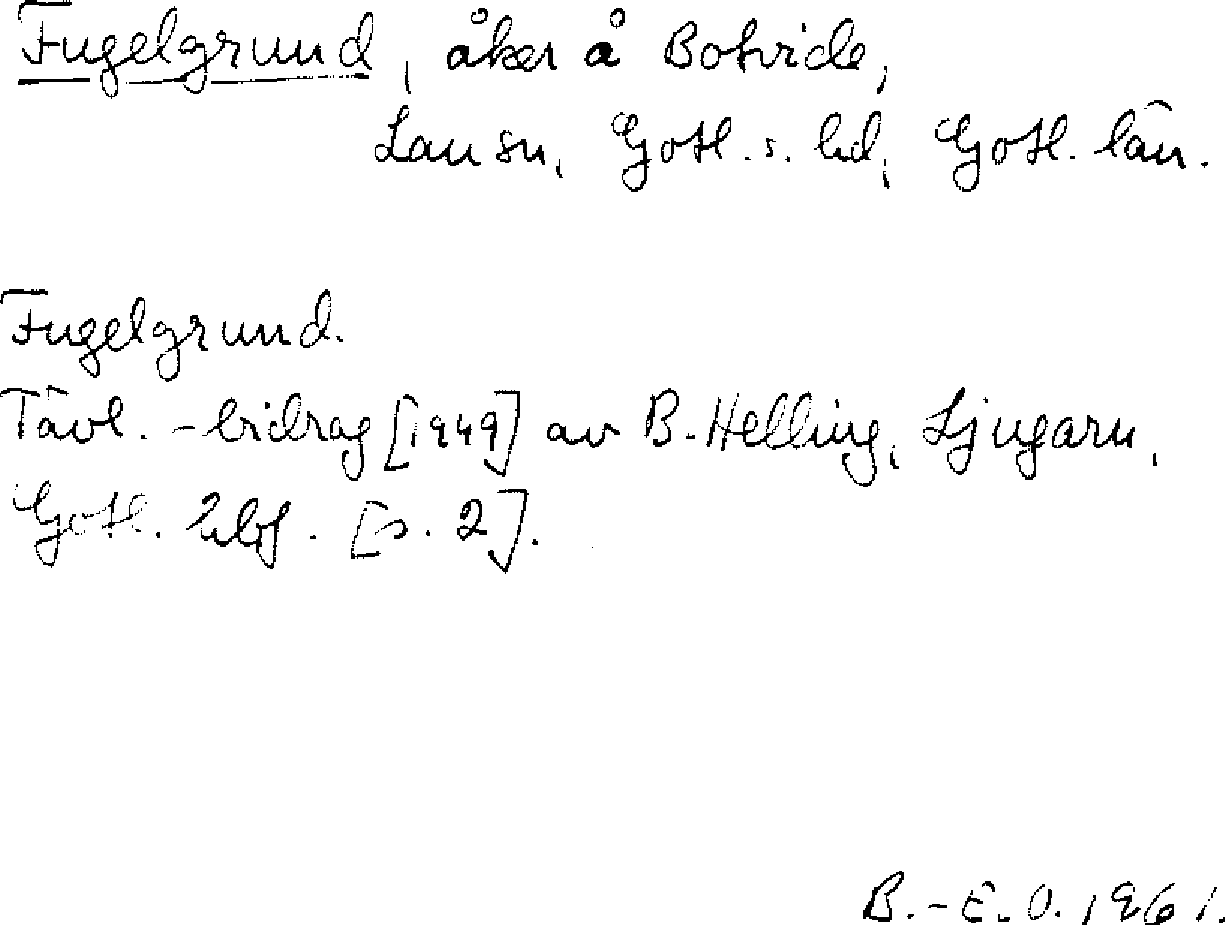 Fugelgrund, åker å Botvide,
Lau sn, Gotl. s. hd, Gotl. län.
Fugelgrund.
Tävl.-bidrag [1949] av B. Helling, Ljugarn,
Gotl. hbf. [s. 2].
B.-E.O. 1961.